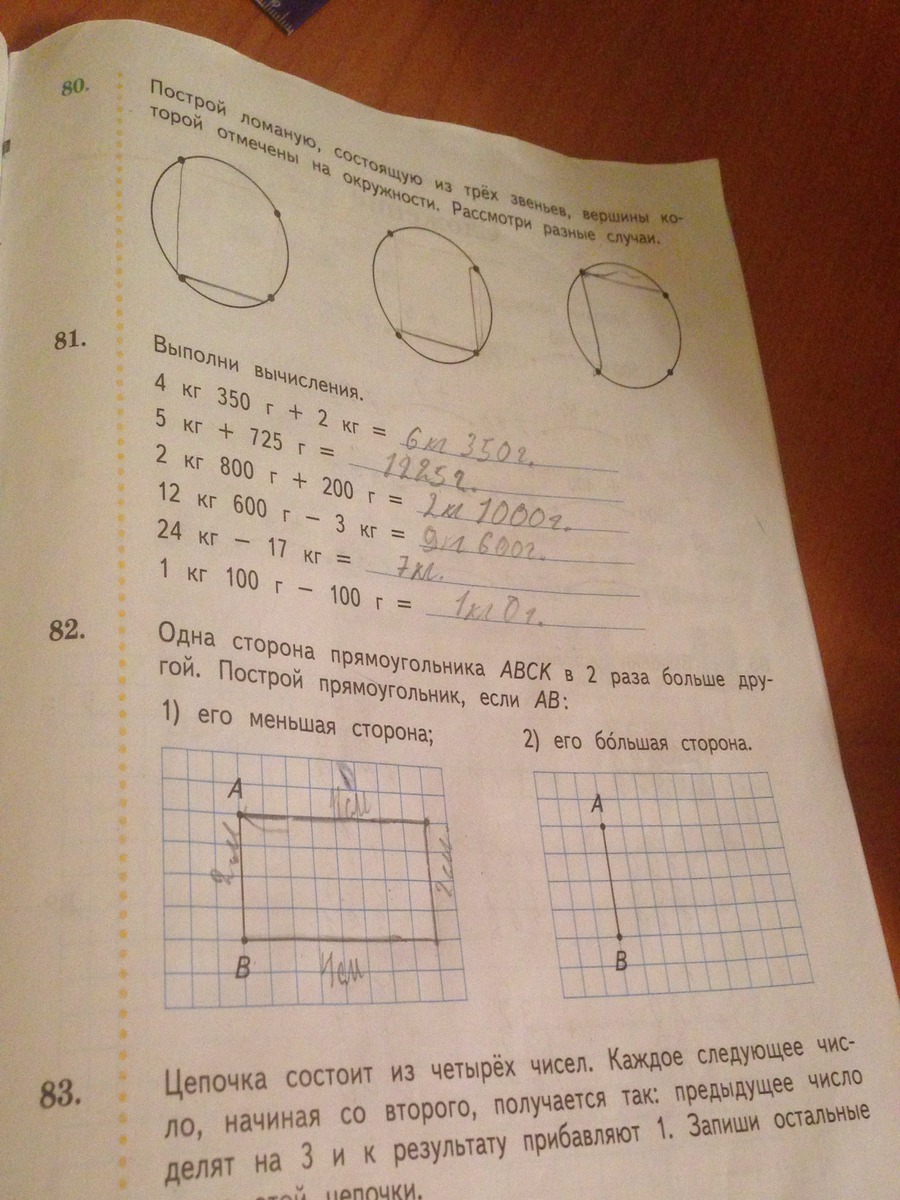 80. Построй ломаную, состоящую из трёх звеньев, вершины ко-
торой отмечены на окружности. Рассмотри разные случаи.
81. Выполни вычисления.
4 кг 350 г + 2 кг = 6 кг 350 г.
5 кг + 725 г = 1225 г.
2 кг 800 г + 200 г = 2 кг 1000 г.
12 кг 600 г − 3 кг = 9 кг 600 г.
24 кг − 17 кг = 7 кг.
1 кг 100 г − 100 г = 1 кг 0 г.
82. Одна сторона прямоугольника ABCK в 2 раза больше дру-
гой. Построй прямоугольник, если AB:
1) его меньшая сторона;
2) его бо́льшая сторона.
A
4 см
2 см
2 см
B
4 см
A
B
83. Цепочка состоит из четырёх чисел. Каждое следующее чис-
ло, начиная со второго, получается так: предыдущее число
делят на 3 и к результату прибавляют 1. Запиши остальные
этой цепочки.